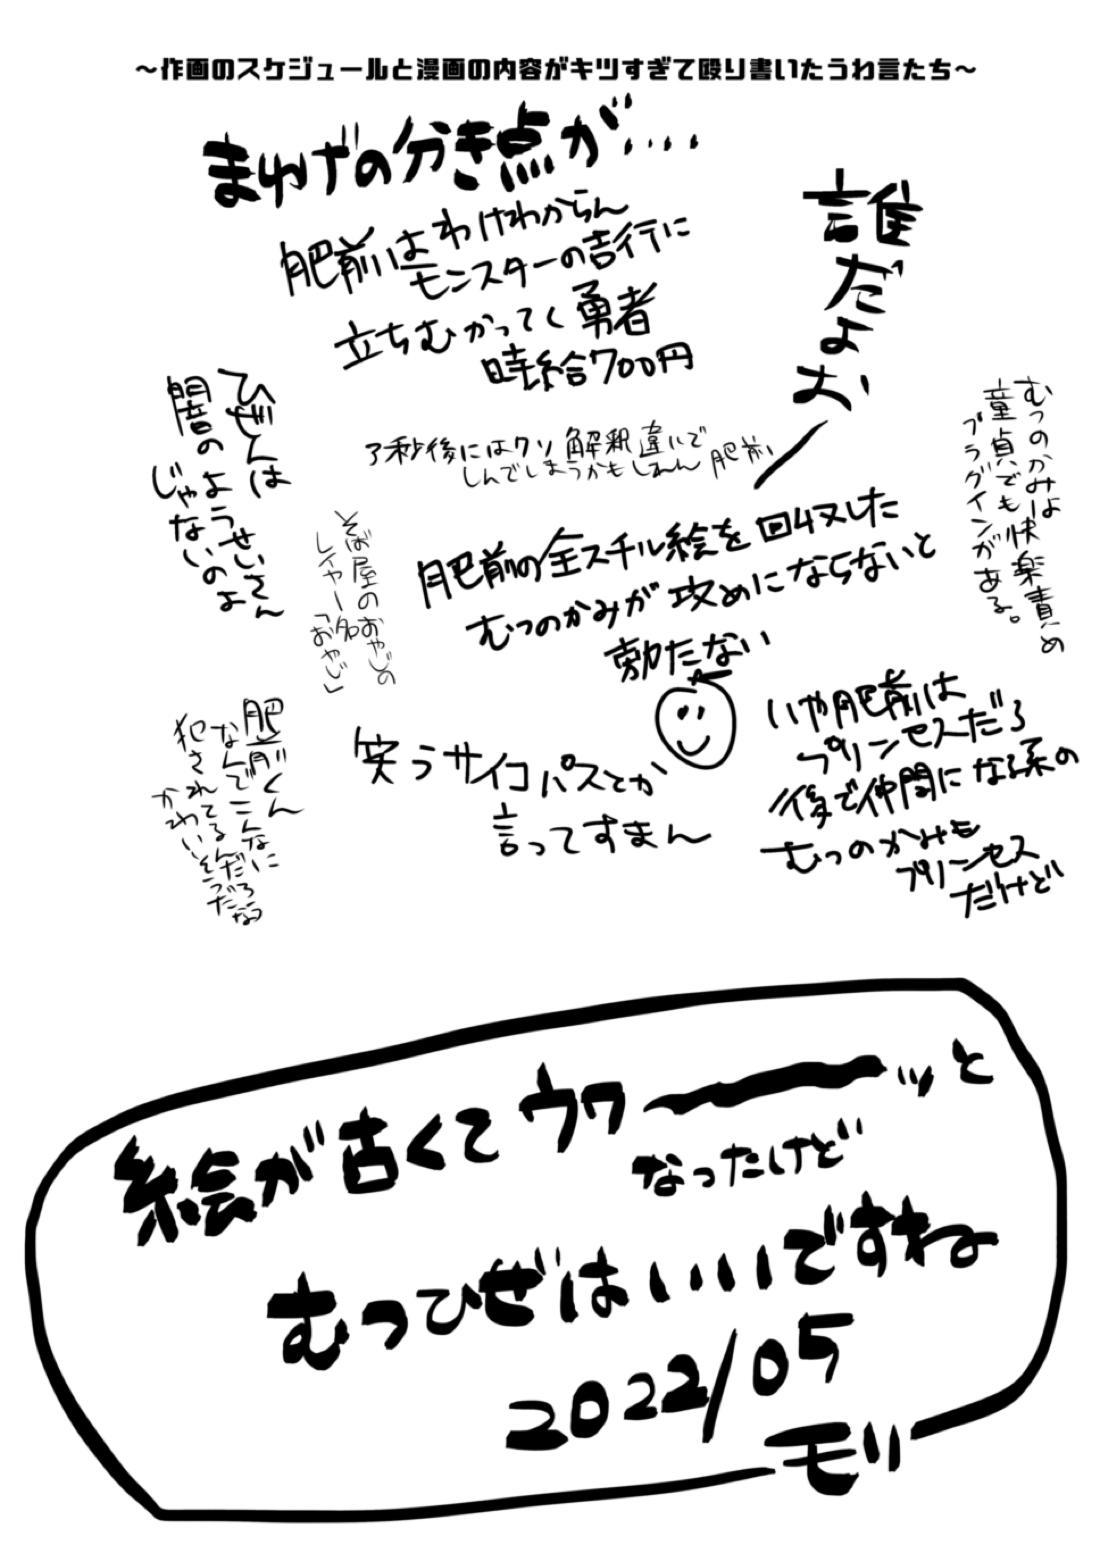 ～作画のスケジュールと漫画の内容がキツすぎて殴り書いたうわ言たち～
まゆげの分き点が‥‥
肥前はわけわからん
モンスターの吉行に
立ちむかってく勇者
時給700円
誰だよお
ひぜんは
闇のようせいさん
じゃないのよ
3秒後にはクソ解釈違いで
しんでしまうかもしれん肥前
むつのかみは
童貞でも快楽責め
プラグインがある。
そば屋のおやじの
レイヤー名
「おやじ」
肥前の全スチル絵を回収した
むつのかみが攻めにならないと
勃たない
肥前くん
なんでこんなに
犯されてるんだろ
かわいそうだなっ
笑うサイコパスとか
言ってすまん
いや肥前は
プリンセスだろ
後で仲間になる系の
むつのかみも
プリンセス
だけど
絵が古くてウワーーーッと
なったけど
むつひぜはいいですね
2022/05
モリ